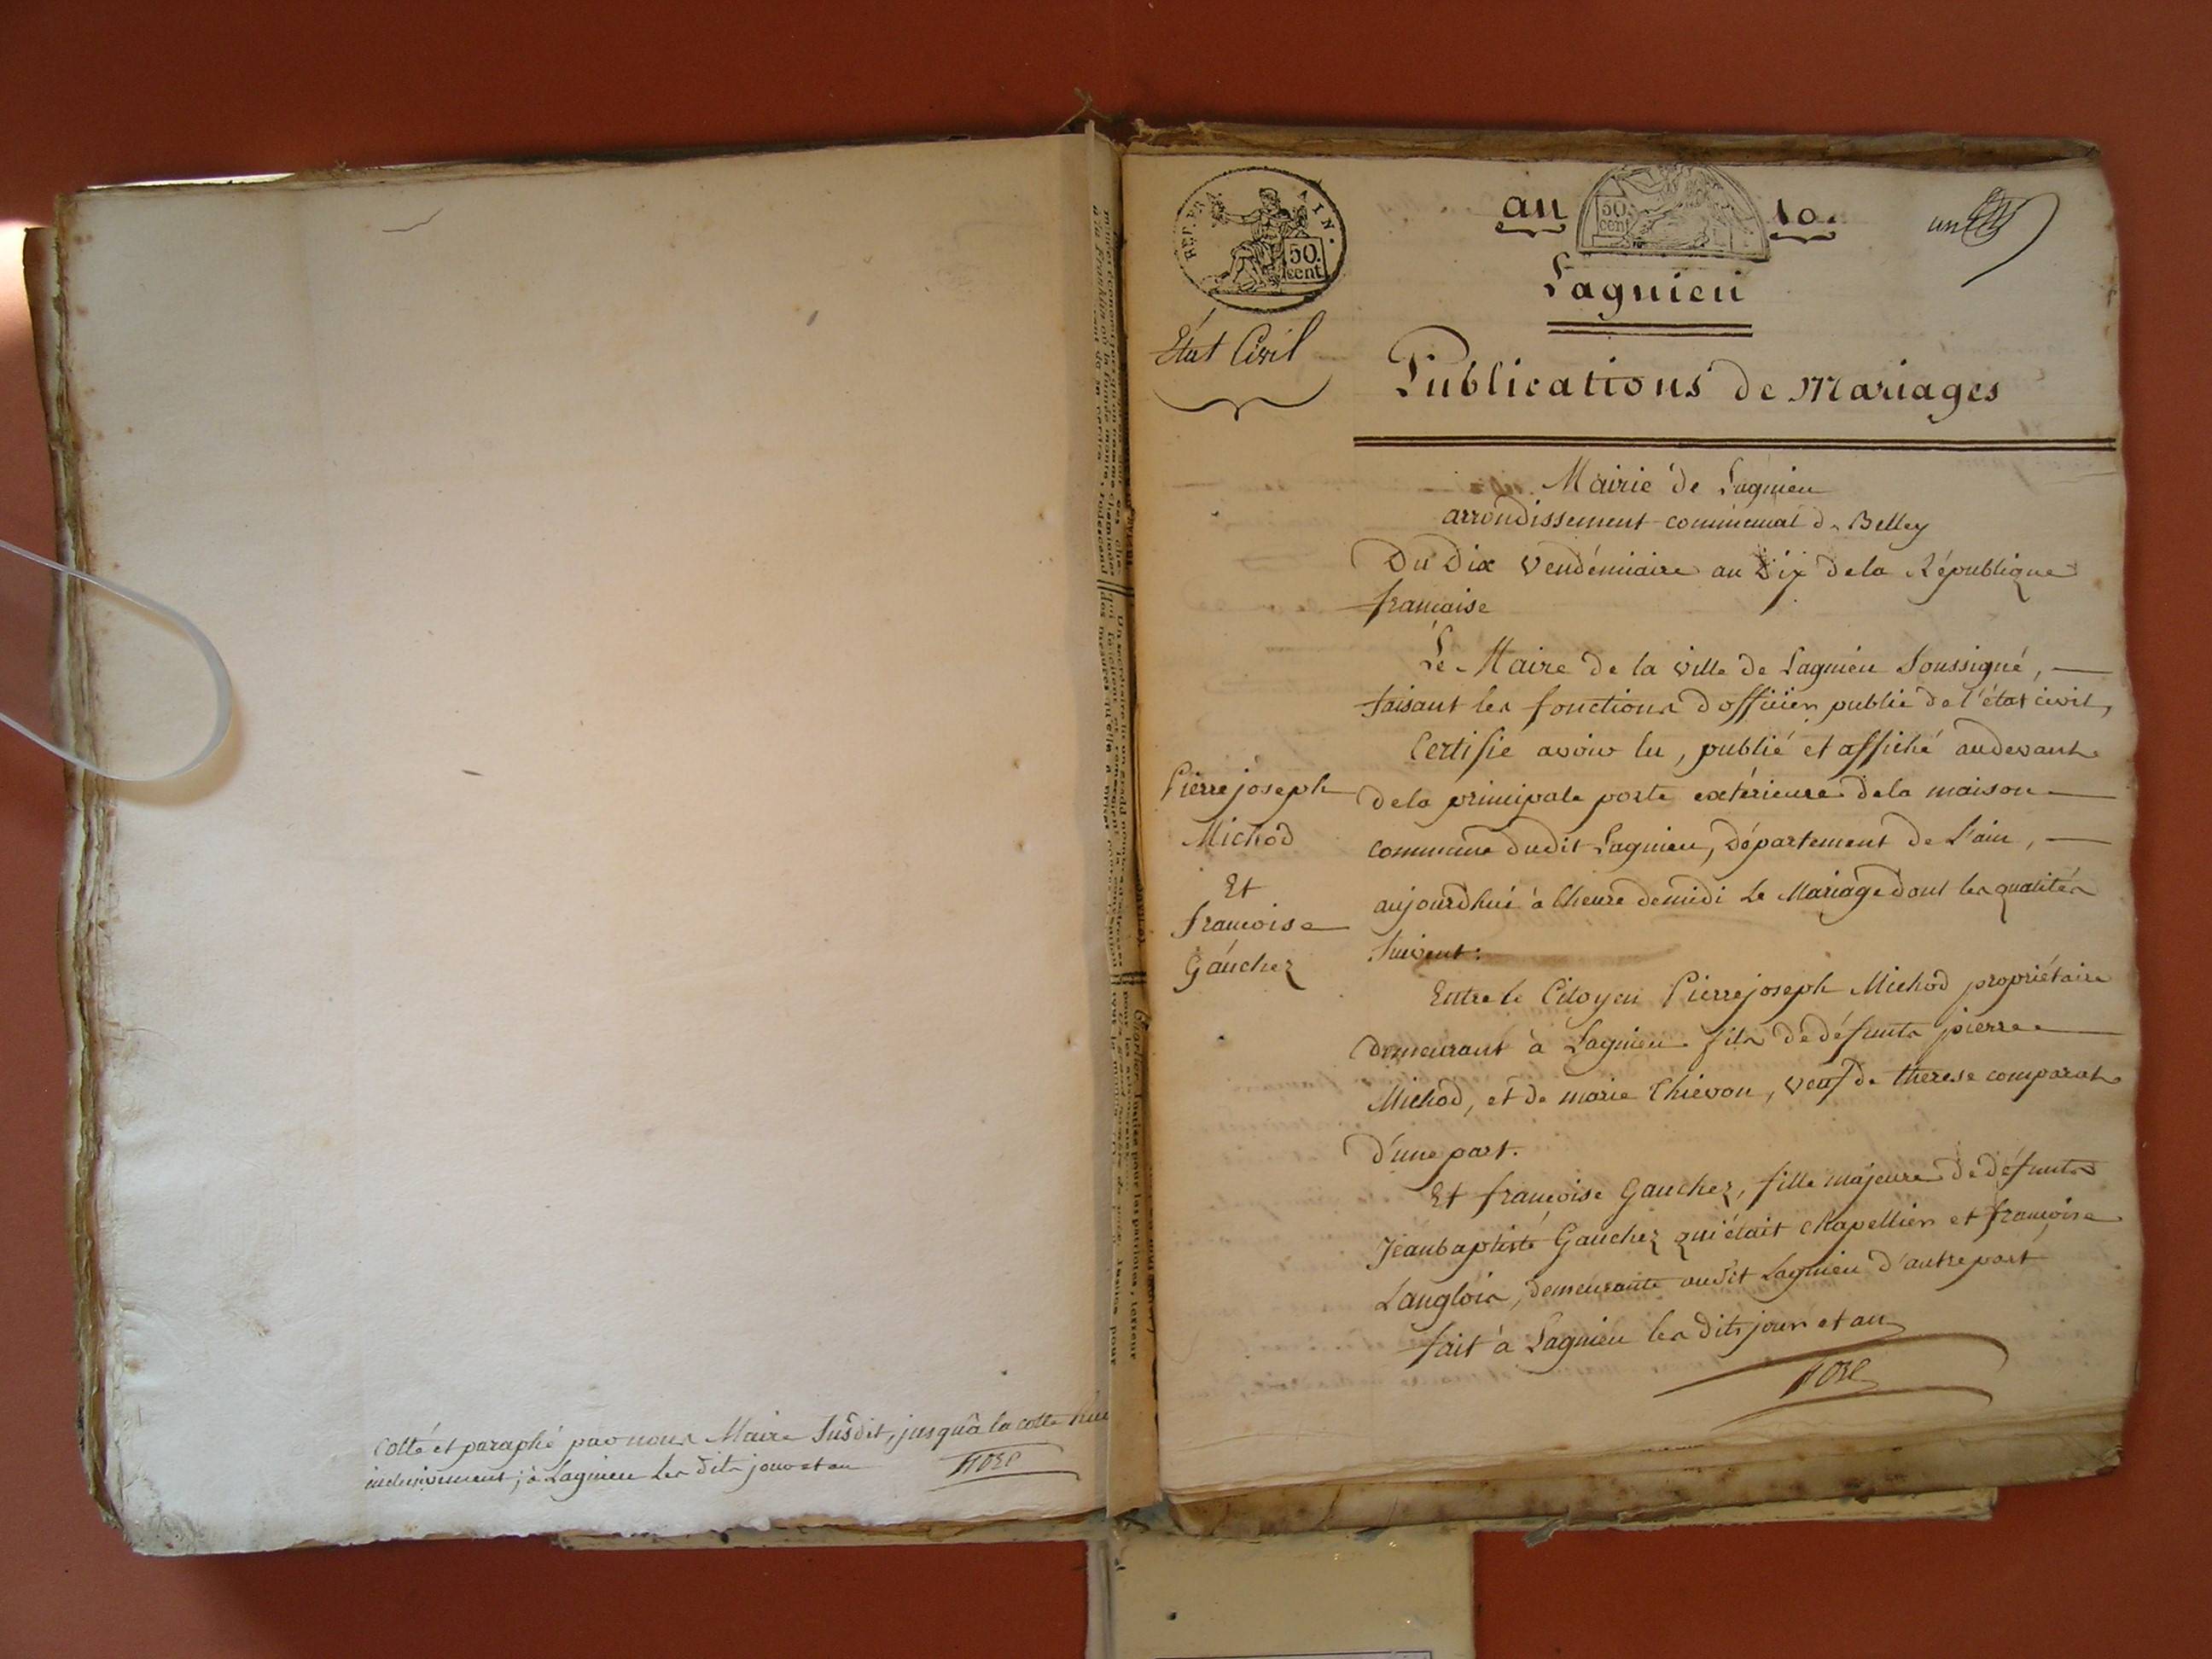 Cotté et paraphé par nous Maire Susdit, jusqu'à la cotte
inclusivement; à Lagnieu les dits jour et an
REP. FRA. AIN.
50.
cent.
an 10.
50.
cent
un
Lagnieu
État Civil
Publications de Mariages
Mairie de Lagnieu
arrondissement communal de Belley
Du Dix Vendémiaire an Dix de la République
française
Le Maire de la ville de Lagnieu Soussigné,
faisant les fonctions d'officier public de l'état civil,
Certifie avoir lu, publié et affiché audevant
dela principale porte extérieure dela maison
commune dudit Lagnieu, département de l'ain,
aujourdhui à lheure demidi le Mariage dont les qualités
Suivent:
Pierre joseph
Michod
Et
francoise
Gauchez
Entre le Citoyen Pierre joseph Michod propriétaire
demeurant à Lagnieu fils de défunts pierre
Michod, et de marie Thievon, veuf de therese comparat
d'une part.
Et françoise Gauchez, fille majeure de défunts
Jean baptiste Gauchez qui était chapellier et françoise
Langlois, demeurante audit Lagnieu d'autre part
fait à Lagnieu les dits jour et an